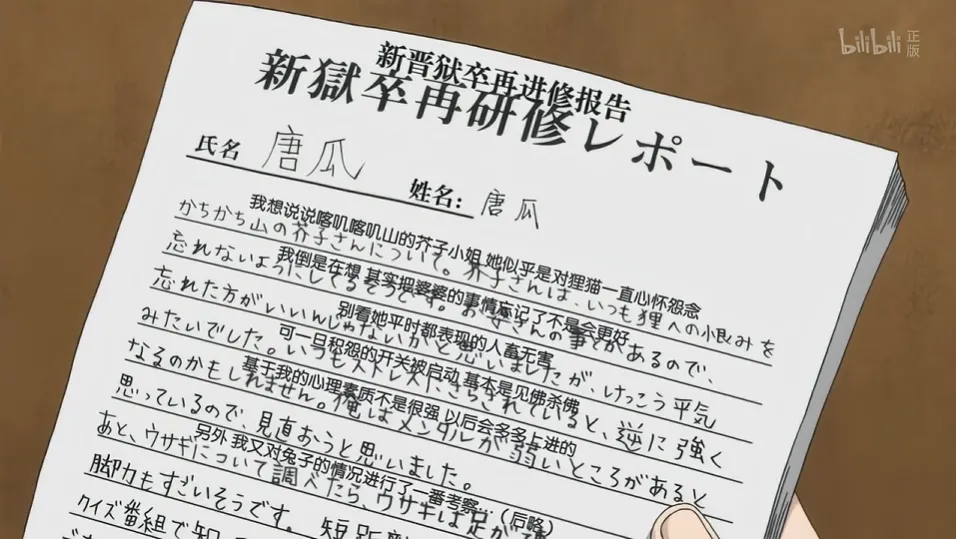 bilibili 正版
新晋狱卒再进修报告
新獄卒再研修レポート
氏名 唐瓜
姓名: 唐瓜
我想说说喀叽喀叽山的芥子小姐 她似乎是对狸猫一直心怀怨念
かちかち山の芥子さんについて。芥子さんは、いつも狸への恨みを
我倒是在想 其实把婆婆的事情忘记了不是会更好
忘れないようにしてるそうです。お婆さんの事とかあるので、
别看她平时都表现的人畜无害
忘れた方がいいんじゃないかと思いましたが、けっこう平気
可一旦积怨的开关被启动 基本是见佛杀佛
みたいでした。いつもストレスにさらされていると、逆に強く
基于我的心理素质不是很强 以后会多多上进的
なるのかもしれません。俺はメンタルが弱いところがあると
思っているので、見直おうと思いました。
另外 我又对兔子的情况进行了一番考察…（后略）
あと、ウサギについて調べたら、ウサギは足が速
脚力もすごいそうです。短距
クイズ番組で知